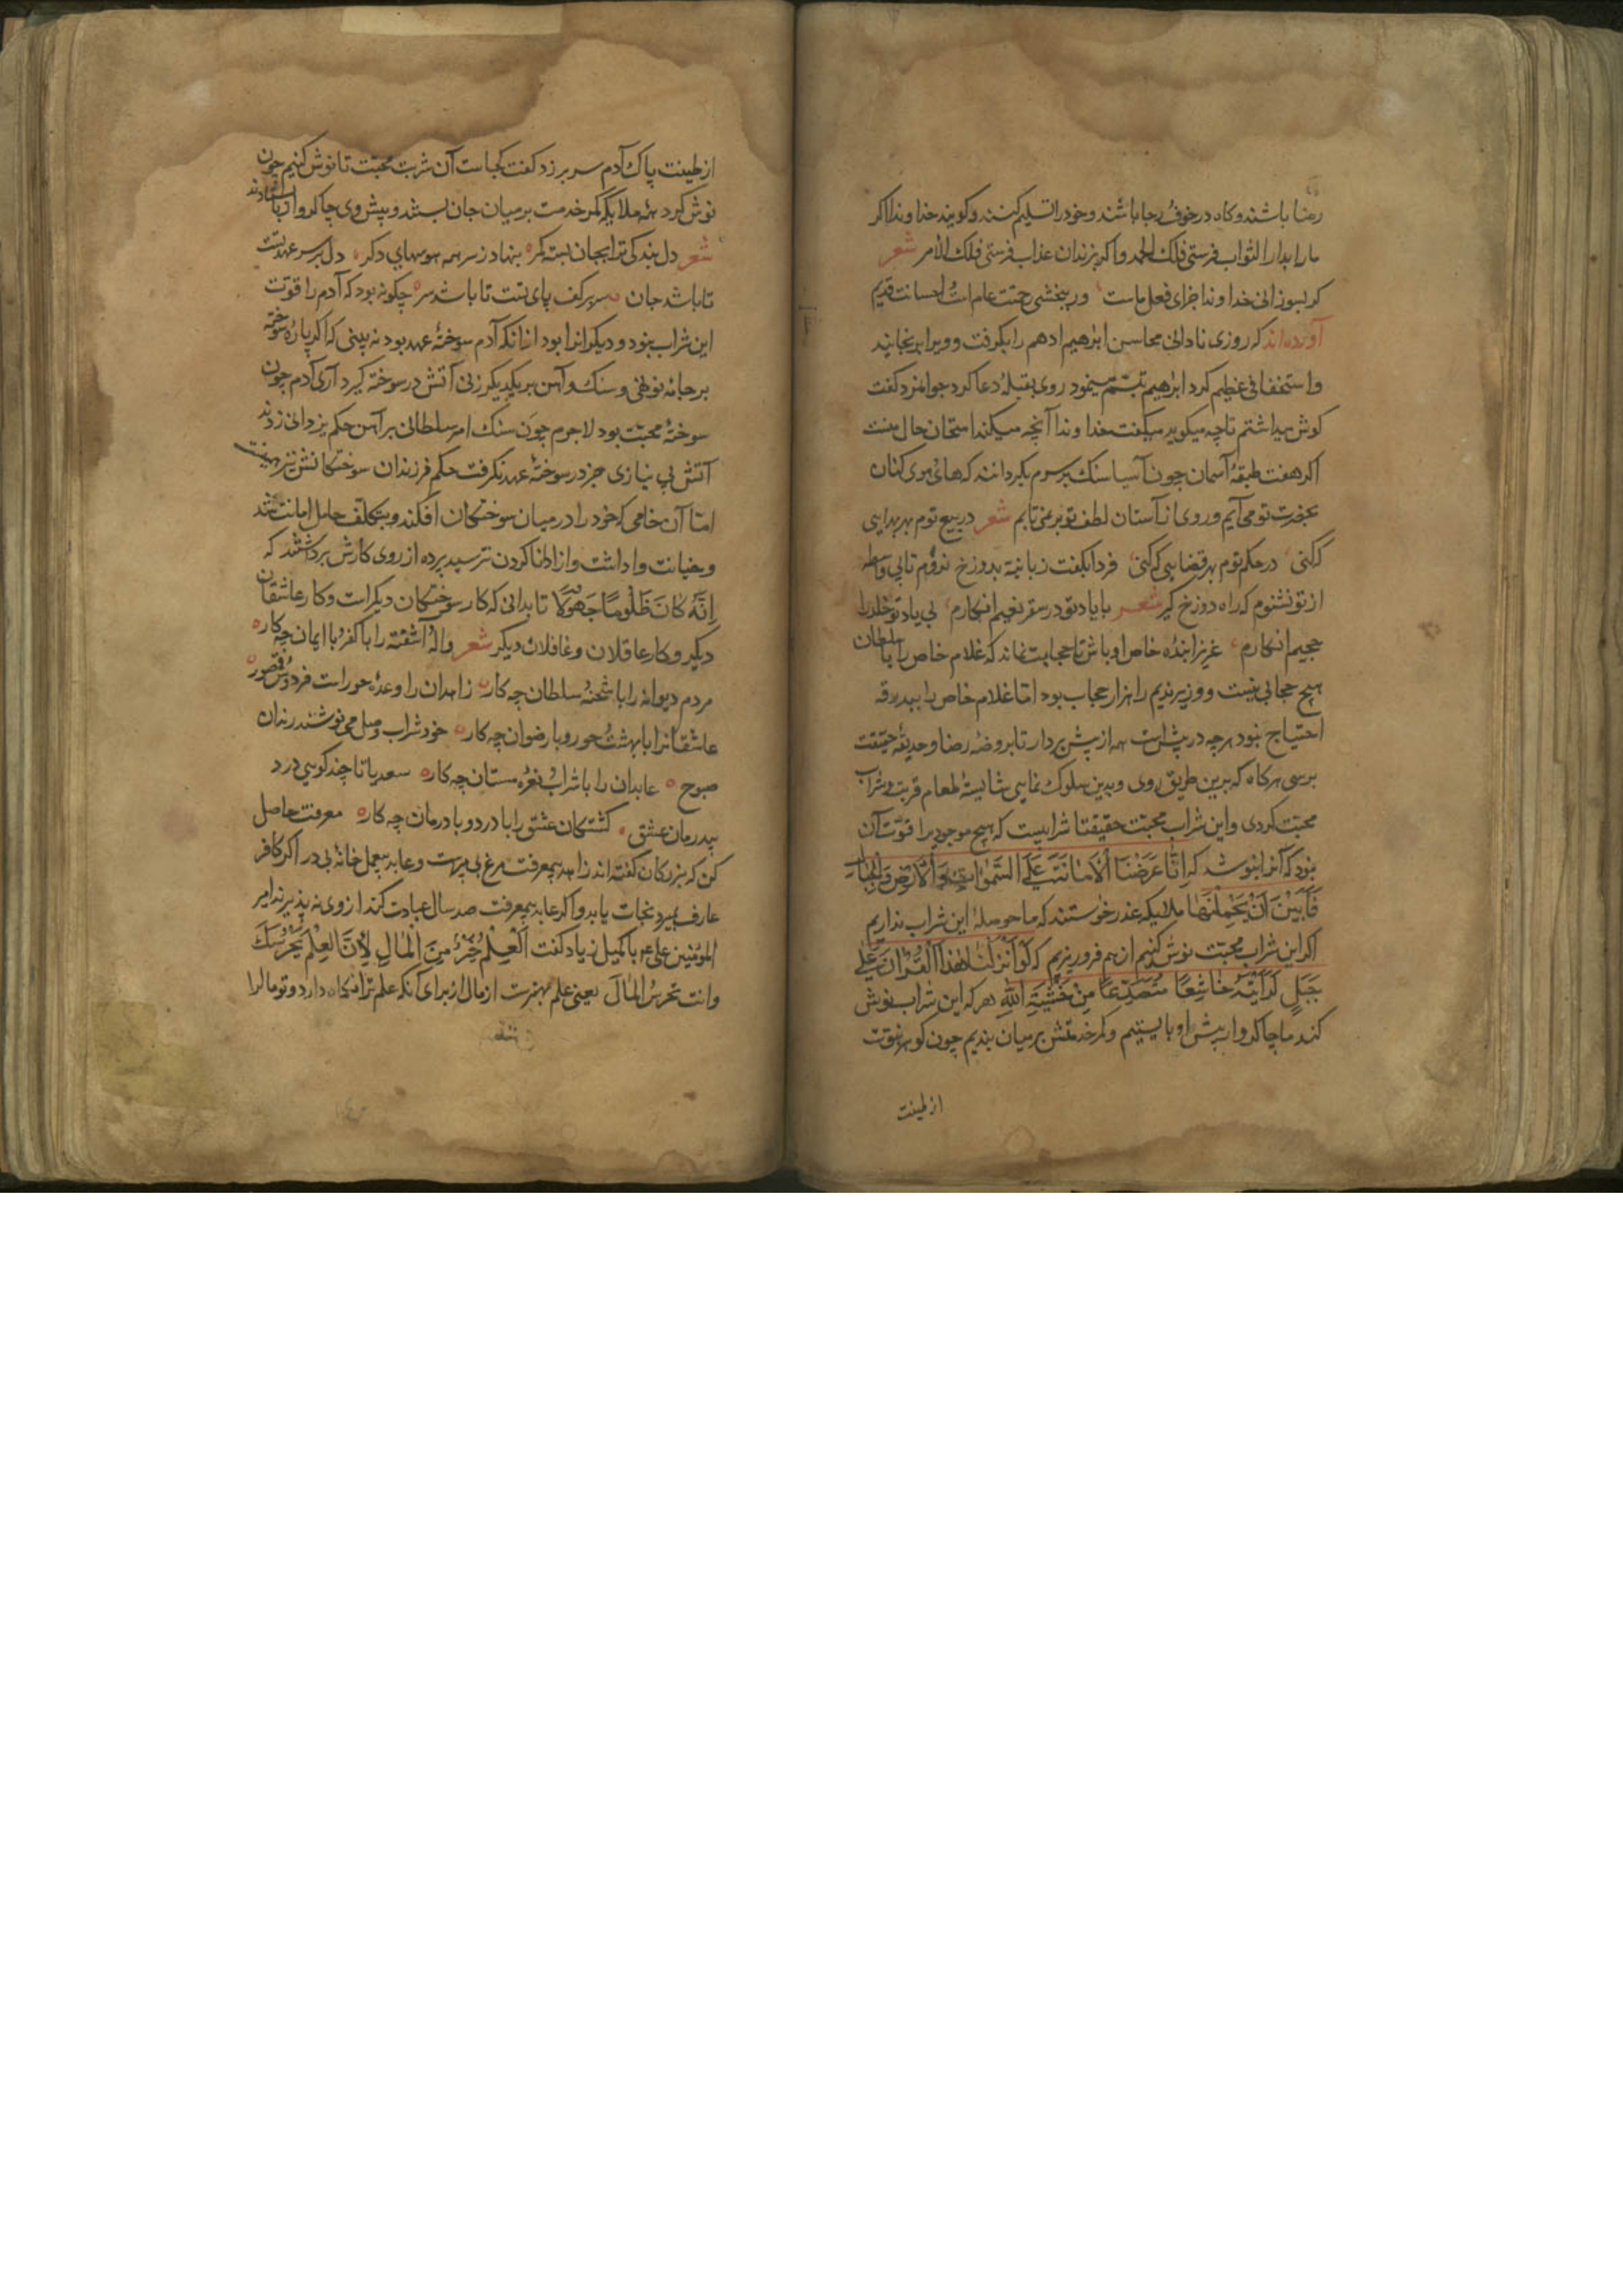 رضا باشند و کاه در خوف رجا باشند و خود را تسلیم کنند و کویند خداوندا اکر
ما را بدار الثواب فرستی فلک الحمد و اکر بزندان عذاب فرستی فلک الامر شعر
کر بسوزانی خداوندا جزای فعل ماست ور ببخشی رحمتت عام است و احسانت قدیم
آورده اند که روزی نادانی محاسن ابرهیم ادهم را بکرفت و ویرا برنجانید
و استخفافی عظیم کرد ابرهیم تبسم مینمود روی بقبله دعا کرد جوانمرد کفت
کوش میداشتم تا چه میکوید میکفت خداوندا آنچه میکند امتحان حال منست
اکر هفت طبقه آسمان چون آسیا سنک بر سرم بکردانند که های هوی کنان
بحضرت تو می آیم و روی از آستان لطف تو بر نمی تابم شعر در بیع توم بهر بهایی
که کنی در حکم توم بهر قضایی که کنی فردا بکفت زبانیه بدوزخ نروم تا بی واسطه
از تو نشنوم که راه دوزخ کیر شعر با یاد تو در سقر نعیم انکارم بی یاد تو خلد را
جحیم انکارم عزیزا بنده خاص او باش تا حجابت نماند که غلام خاص را با سلطان
هیچ حجابی نیست و وزیر ندیم را هزار حجاب بود اما غلام خاص را ببدرقه
احتیاج نبود هرچه در پیش است همه از پیش بردار تا بروضه رضا و حدیقه حقیقت
برسی هرکاه که برین طریق روی و بدین سلوک نمایی شایسته طعام قربت و شراب
محبت کردی و این شراب محبت حقیقتا شرابیست که هیچ موجودیرا قوت آن
نبود که آنرا بنوشد که اِنَّا عَرَضْنَا الْاَمَانَتَ عَلَی السَّمٰوَاتِ وَالْاَرْضِ وَالْجِبَالِ
فَاَبَیْنَ اَنْ یَحْمِلْنَهَا ملائیکه عذر خواستند که ما حوصله این شراب نداریم
اکر این شراب محبت نوش کنیم از هم فرو ریزیم که لَوْ اَنْزَلْنَا هٰذَا الْقُرْاٰنَ عَلٰی
جَبَلٍ لَرَاَیْتَهُ خَاشِعًا مُتَصَدِّعًا مِنْ خَشْیَةِ اللّٰهِ هر که این شراب نوش
کند ما چاکروار پیش او بایستیم و کمر خدمتش بر میان بندیم چون کوهر نبوت
از طینت
از طینت پاک آدم سر بر زد کفت کجاست آن شربت محبت تا نوش کنیم چون
نوش کرد همه ملایکه کمر خدمت بر میان جان بستند و پیش وی چاکروار باستادند
شعر دل بندکی ترا بجان بسته کمر بنهاد ز سر همه هوسهای دکر دل بر سر عهد تست
تا باشد جان سر بر کف پای تست تا باشد سر چکونه بود که آدم را قوت
این شراب بود و دیکرانرا نبود از آنکه آدم سوخته عهد بود نه بینی که اکر پاره سوخته
بر جامه نو نهی و سنک و آهن بر یکدیکر زنی آتش در سوخته کیرد آری آدم چون
سوخته محبت بود لاجرم چون سنک امر سلطانی بر آهن حکم یزدانی زدند
آتش بی نیازی جز در سوخته عهد نکرفت حکم فرزندان سوختکانش نیز همینست
اما آن خامی که خود را در میان سوختکان افکند و بتکلف حامل امانت شد
و خیانت وا داشت و از ادا نا کردن نترسید پرده از روی کارش برداشتند که
اِنَّهُ کَانَ ظَلُومًا جَهُولًا تا بدانی که کار سوختکان دیکر است و کار عاشقان
دیکر و کار عاقلان و غافلان دیکر شعر واله آشفته را با کفر با ایمان چه کار
مردم دیوانه را با شحنه سلطان چه کار زاهدان را وعده حور است فردوس قصور
عاشقانرا با بهشت حور و با رضوان چه کار خود شراب وصل می نوشند رندان
صبوح عابدان را با شراب نعره مستان چه کار سعدیا تا چند کویی درد
بیدرمان عشق کشتکان عشق را با درد و با درمان چه کار معرفت حاصل
کن که بزرکان کفته اند زاهد بیمعرفت مرغ بی پرست و عابد بیعمل خانه بی در اکر کافر
عارف بمیرد نجات یابد و اکر عابد بیمعرفت صد سال عبادت کند از وی نه پذیرند امیر
المؤمنین علی عم با کمیل زیاد کفت اَلْعِلْمُ خَیْرٌ مِنَ الْمَالِ لِاَنَّ الْعِلْمَ یَحْرُسُکَ
وانت تحرس المال یعنی علم بهترست از مال از برای آنکه علم ترا نکاه دارد و تو مال را